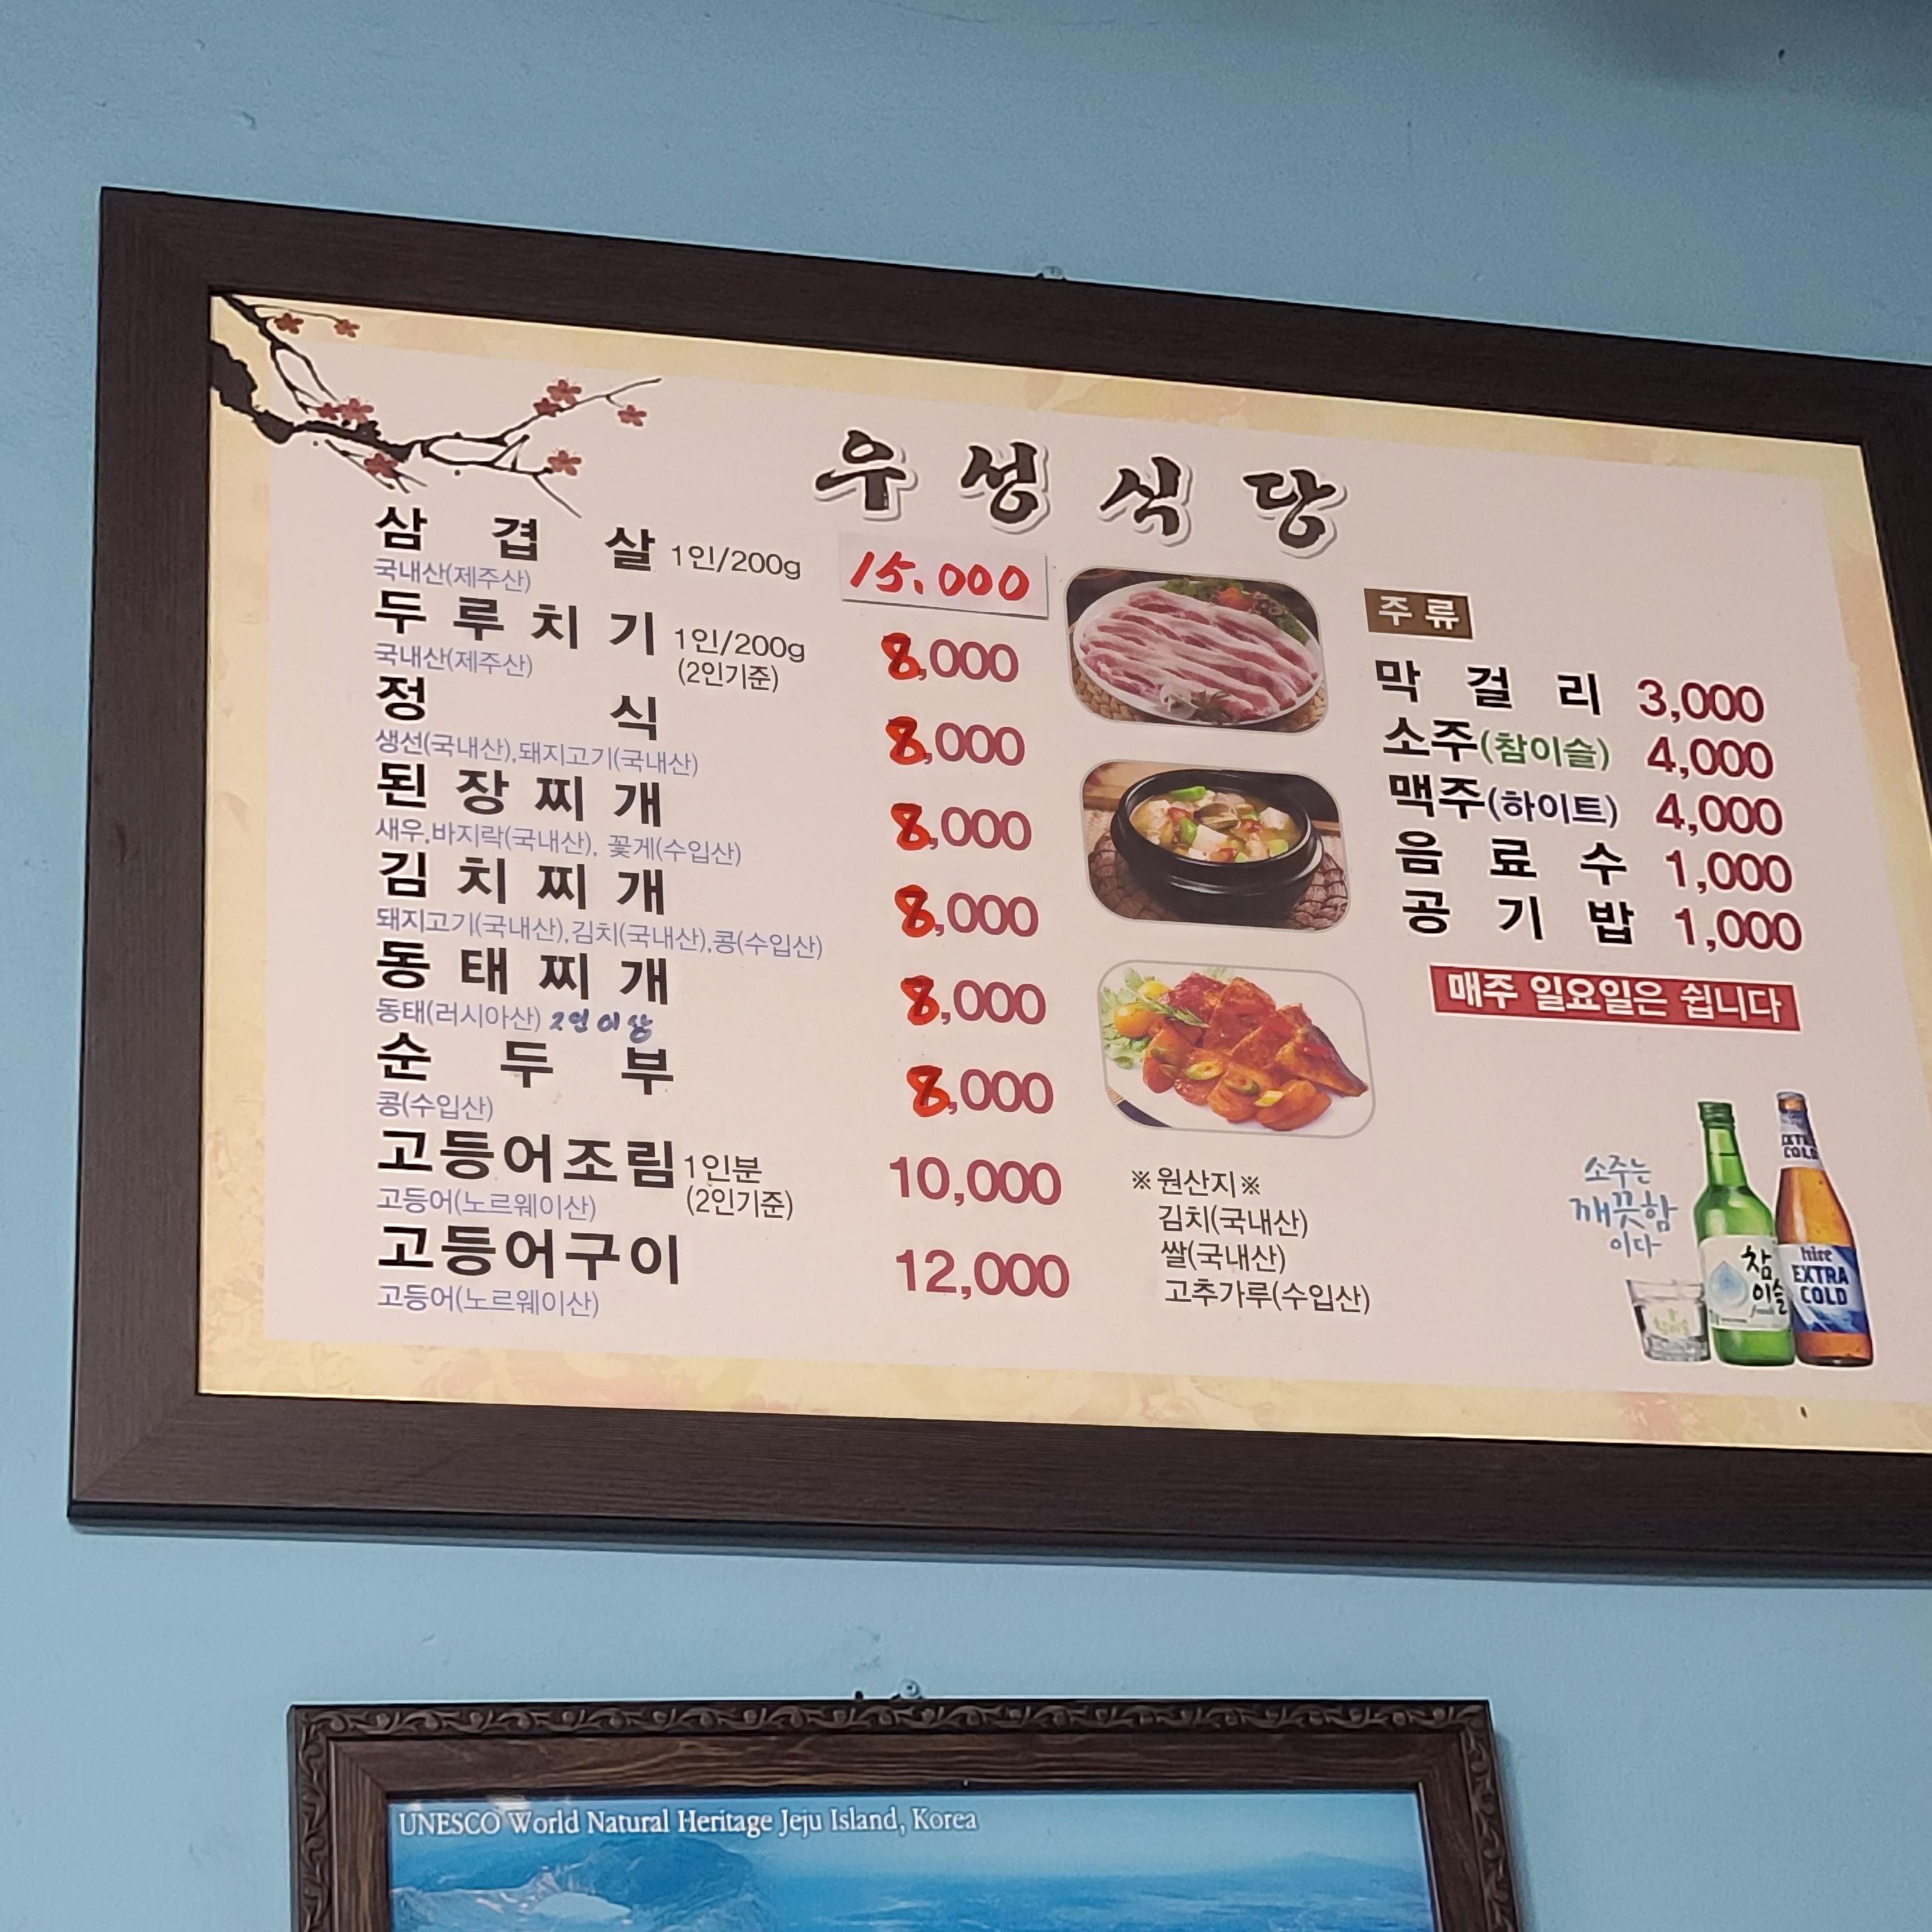 우성식당
삼겹살 1인/200g 15.000
국내산(제주산)
두루치기 1인/200g (2인기준) 8,000
국내산(제주산)
정식 8,000
생선(국내산),돼지고기(국내산)
된장찌개 8,000
새우,바지락(국내산), 꽃게(수입산)
김치찌개 8,000
돼지고기(국내산),김치(국내산),콩(수입산)
동태찌개 8,000
동태(러시아산) 2인이상
순두부 8,000
콩(수입산)
고등어조림 1인분 (2인기준) 10,000
고등어(노르웨이산)
고등어구이 12,000
고등어(노르웨이산)
※원산지※
김치(국내산)
쌀(국내산)
고추가루(수입산)
주류
막걸리 3,000
소주(참이슬) 4,000
맥주(하이트) 4,000
음료수 1,000
공기밥 1,000
매주 일요일은 쉽니다
소주는
깨끗함
이다
참
이슬
fresh
EXTRA
COLD
hite
EXTRA
COLD
UNESCO World Natural Heritage Jeju Island, Korea